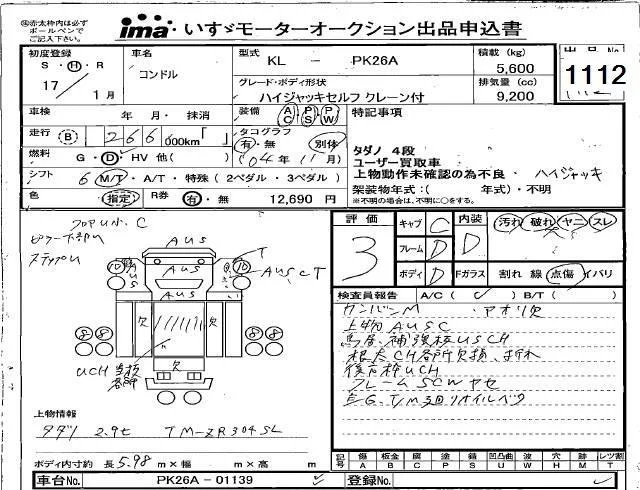 赤太枠内は必ず
ボールペンで
ご記入下さい。
ima いすゞモーターオークション出品申込書
初度登録 車名 型式 KL - PK26A 積載 (kg) 5,600 出品No
S・H・R 17 / 1月 コンドル グレード・ボディ形状 ハイジャッキセルフ クレーン付 排気量 (cc) 9,200 1112
車検 年 月・抹消 装備 AC PS PW 特記事項
走行 B 266,000km「 」 タコグラフ 有・無 別体
燃料 G・D・HV 他( ) ('04年 11月)
シフト 6 M/T・A/T・特殊 (2ペダル・3ペダル)
色 指定 R券 有・無 12,690 円
タダノ 4段
ユーザー買取車
上物動作未確認の為不良・ハイジャッキ
架装物年式:( 年式)・不明
※不明の場合は、不明に○をする。
フロアUい、C
ステップU
AUS
T
AUSCT
AUS
AUS
欠 欠
欠
UCH
評価 3
キャブ C 内装 D 汚れ 破れ ヤニ スレ
フレーム D
ボディ D Fガラス 割れ 線 点傷 イバリ
検査員報告 A/C ( ✓ ) B/T ( )
カンバンM、アオリ欠
上物AUSC
馬居、補強板USCH
根太CH各所欠損、折れ
後方枠UCH
フレームSCWヤセ
E/G、T/M廻リオイルベタ
上物情報
タダノ 2.9t TM-ZR304SL
ボディ内寸約 長 5.98 m×幅 m×高 m
記号 傷 A 板金 B 腐 C 塗 P 錆 S 凹凸曲 U 波 W 穴 H 跡 M レツ割 T
車台No. PK26A-01139 ✓ 登録No. ✓